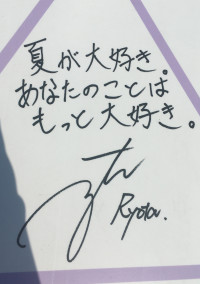 夏が大好き。
あなたのことは
もっと大好き。
Ryota.